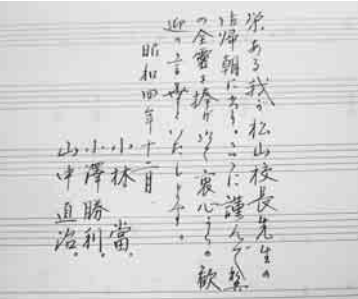 栄ある我が松山校長先生の
御帰朝に当り、ここに謹んで
の全霊を捧げて衷心よりの歓
迎の言葉といたします。
昭和四年十二月
小林 當。
小澤勝利。
山中直治。